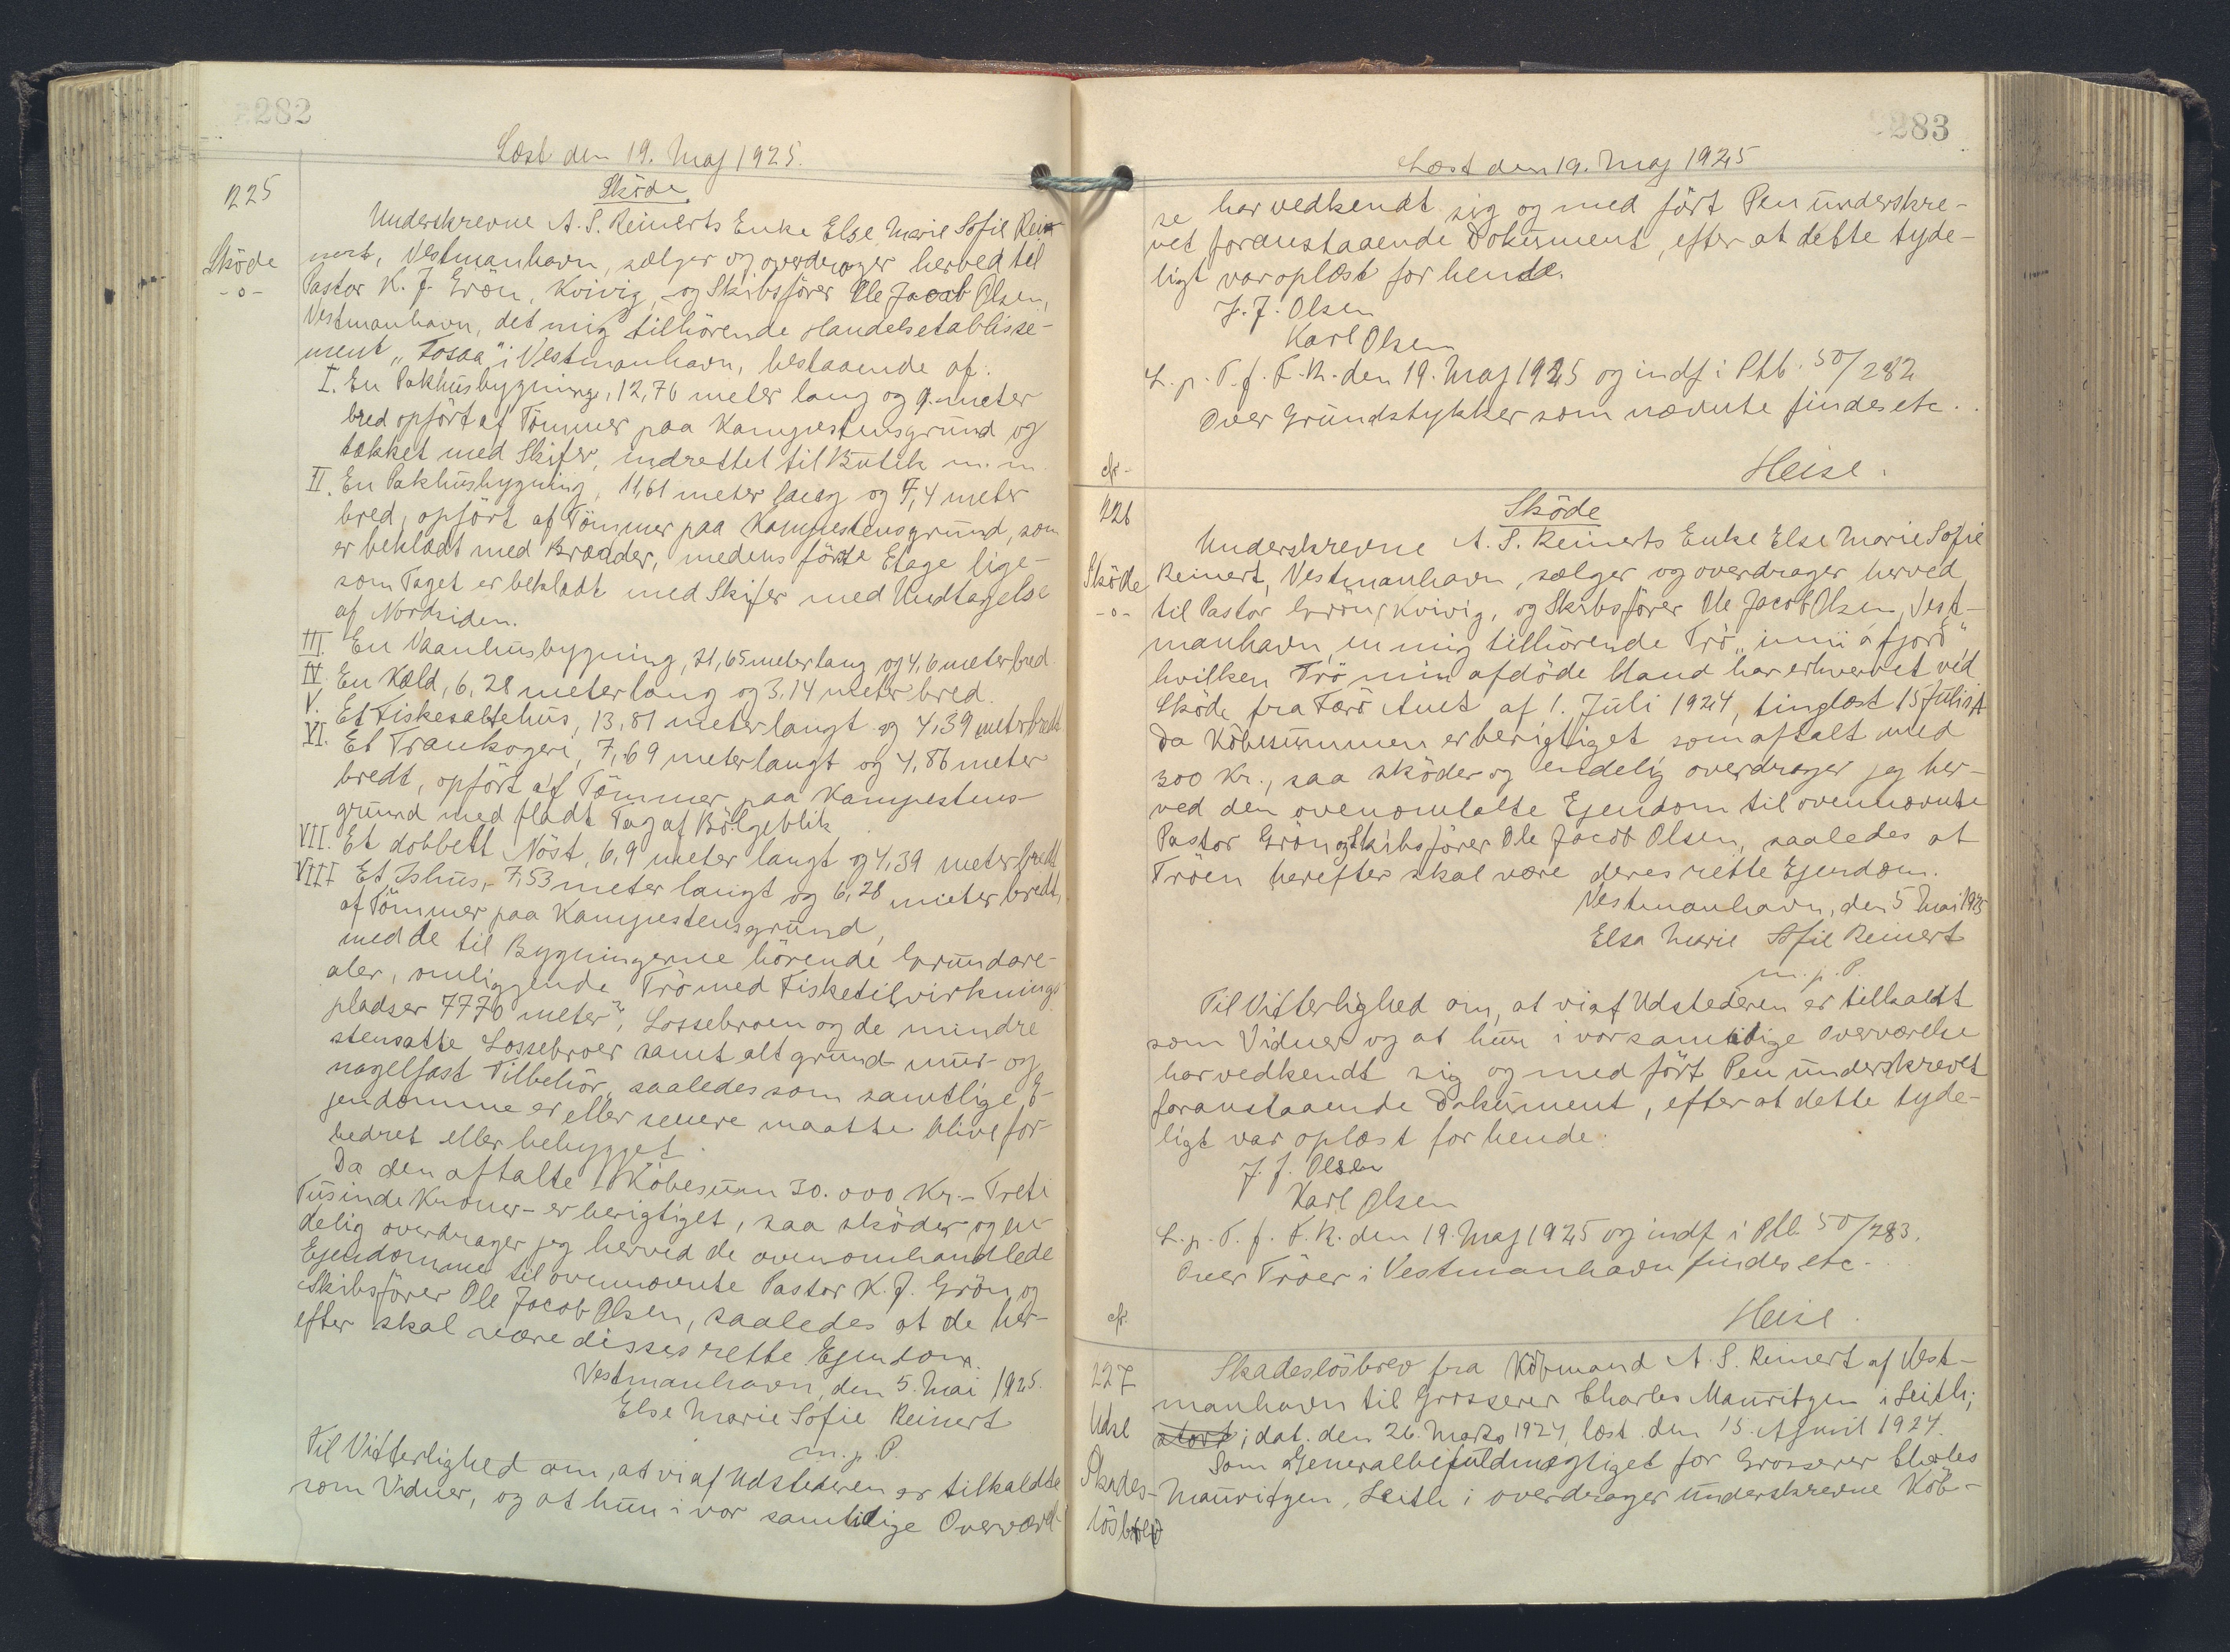 282
Læst den 19. Maj 1925.
225
Sköde
Sköde
-o-
Underskrevne A. S. Reinerts Enke Else Marie Sofie Rei-
nert, Vestmanhavn, sælger og overdrager herved til
Pastor K. J. Grön, Kvivig, og Skibsförer Ole Jacob Olsen,
Vestmanhavn, det mig tilhörende Handelsetablisse-
ment „Fosaa" i Vestmanhavn, bestaaende af.
I. En Pakhusbygning, 12,76 meter lang og 9. meter
bred opfört af Tömmer paa Kampestensgrund og
tækket med Skifer, indrettet til Butik m. m.
II. En Pakhusbygning, 11,61 meter lang og 7,4 meter
bred, opfört af Tömmer paa Kampestensgrund, som
er beklædt med Brædder, medens förste Etage lige-
som Taget er beklædt med Skifer med Undtagelse
af Nordsiden.
III. En Vaanhusbygning, 21,65 meter lang og 4,6 meter bred.
IV. En Kæld, 6,28 meter lang og 3,14 meter bred.
V. Et Fiskesaltehus, 13,81 meter langt og 4,39 meter bredt.
VI. Et Trankogeri, 7,69 meter langt og 4,86 meter
bredt, opfört af Tömmer paa Kampestens-
grund med fladt Tag af Bölgeblik.
VII. Et dobbelt Nöst, 6,9 meter langt og 4,39 meter bredt
VIII Et Ishus, 7,53 meter langt og 6,28 meter bredt,
af Tömmer paa Kampestensgrund,
med de til Bygningerne hörende Grundare-
aler, omliggende Trö med Fisketilvirknings-
pladser 7770 meter², Lossebroen og de mindre
stensatte Lossebroer samt alt grund- mur- og
nagelfast Tilbehör, saaledes som samtlige E-
jendomme er eller senere maatte blive for-
bedret eller bebygget.
Da den aftalte Köbesum 30.000 Kr. - Treti
Tusinde Kroner - er berigtiget, saa sköder og en-
delig overdrager jeg herved de ovenomhandlede
Ejendomme til ovennævnte Pastor K. J. Grön og
Skibsförer Ole Jacob Olsen, saaledes at de her-
efter skal være disses rette Ejendom.
Vestmanhavn, den 5. Mai 1925.
Else Marie Sofie Reinert
m. p. P.
Til Vitterlighed om, at vi af Udstederen er tilkaldte
som Vidner, og at hun i vor samtidige Overværel-
283
Læst den 19. Maj 1925
se har vedkendt sig og med fört Pen underskre-
vet foranstaaende Dokument, efter at dette tyde-
ligt var oplæst for hende.
J. J. Olsen
Karl Olsen
L. p. T. f. F. R. den 19. Maj 1925 og indf i Ptb. 50/282
Over Grundstykker som nævnte findes etc.
cfr.
Heise.
226
Sköde
Sköde
-o-
Underskrevne A. S. Reinerts Enke Else Marie Sofie
Reinert, Vestmanhavn, sælger og overdrager herved
til Pastor Grön, Kvivig, og Skibsförer Ole Jacob Olsen, Vest-
manhavn, en mig tilhörende Trö „inni á fjord"
hvilken Trö min afdöde Mand har erhvervet ved
Sköde fra Færö Amt af 1. Juli 1924, tinglæst 15 Juli s. A
Da Köbesummen er berigtiget som aftalt med
300 Kr., saa sköder og endelig overdrager jeg her-
ved den ovenomtalte Ejendom til ovennævnte
Pastor Grön og Skibsförer Ole Jacob Olsen, saaledes at
Tröen herefter skal være deres rette Ejendom.
Vestmanhavn, den 5 Mai 1925
Elsa Marie Sofie Reinert
m. p. P.
Til Vitterlighed om, at vi af Udstederen er tilkaldt
som Vidner og at hun i vor samtidige Overværelse
har vedkendt sig og med fört Pen underskrevet
foranstaaende Dokument, efter at dette tyde-
ligt var oplæst for hende.
J. J. Olsen
Karl Olsen
L. p. T. f. F. R. den 19. Maj 1925 og indf i Ptb. 50/283.
Over Tröer i Vestmanhavn findes etc.
cfr.
Heise.
227
Udsl
Skades-
lösbrev
Skadeslösbrev fra Köbmand A. S. Reinert af Vest-
manhavn til Grosserer Charles Mauritzen i Leith;
i dat. den 26. Marts 1924, læst den 15. April 1924.
Som Generalbefuldmægtiget for Grosserer Charles
Mauritzen, Leith i overdrager underskrevne Köb-